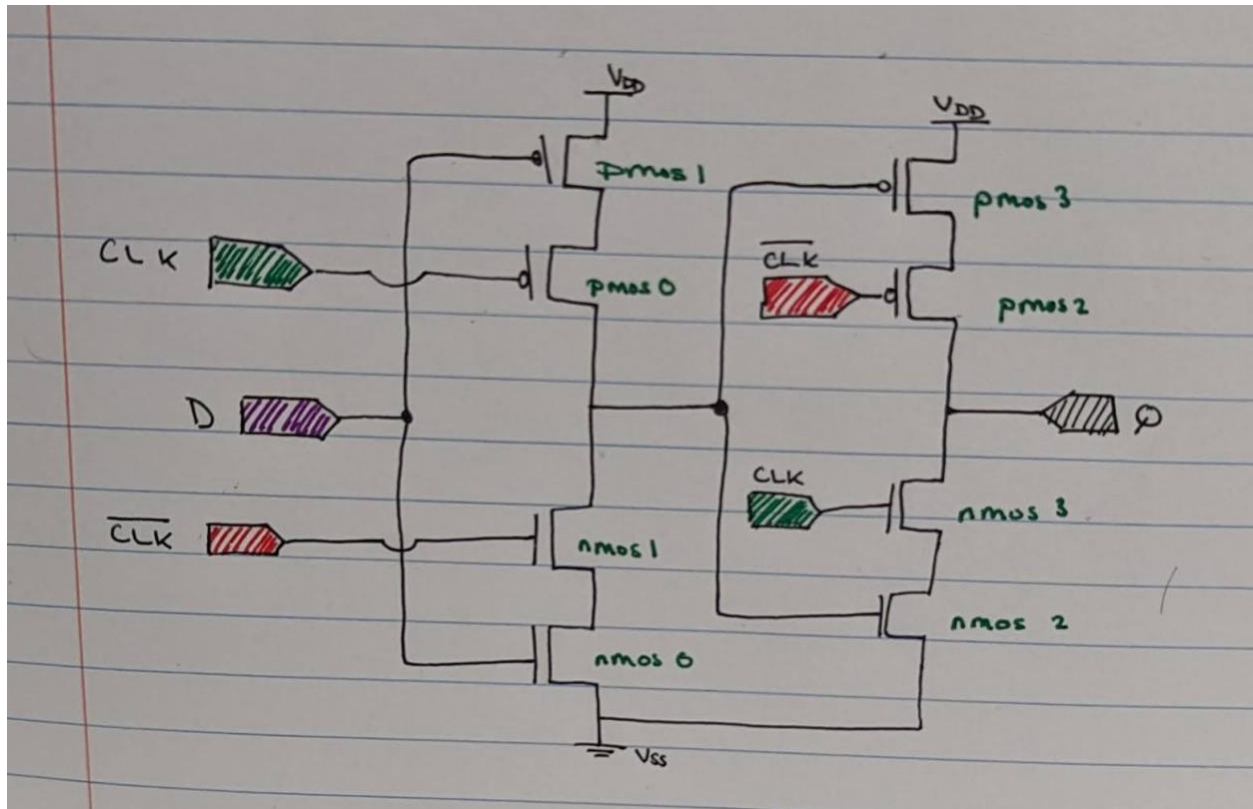 VDD
VDD
pmos 1
pmos 3
CLK
CLK
pmos 0
pmos 2
D
Q
CLK
nmos 3
CLK
nmos 1
nmos 2
nmos 0
Vss